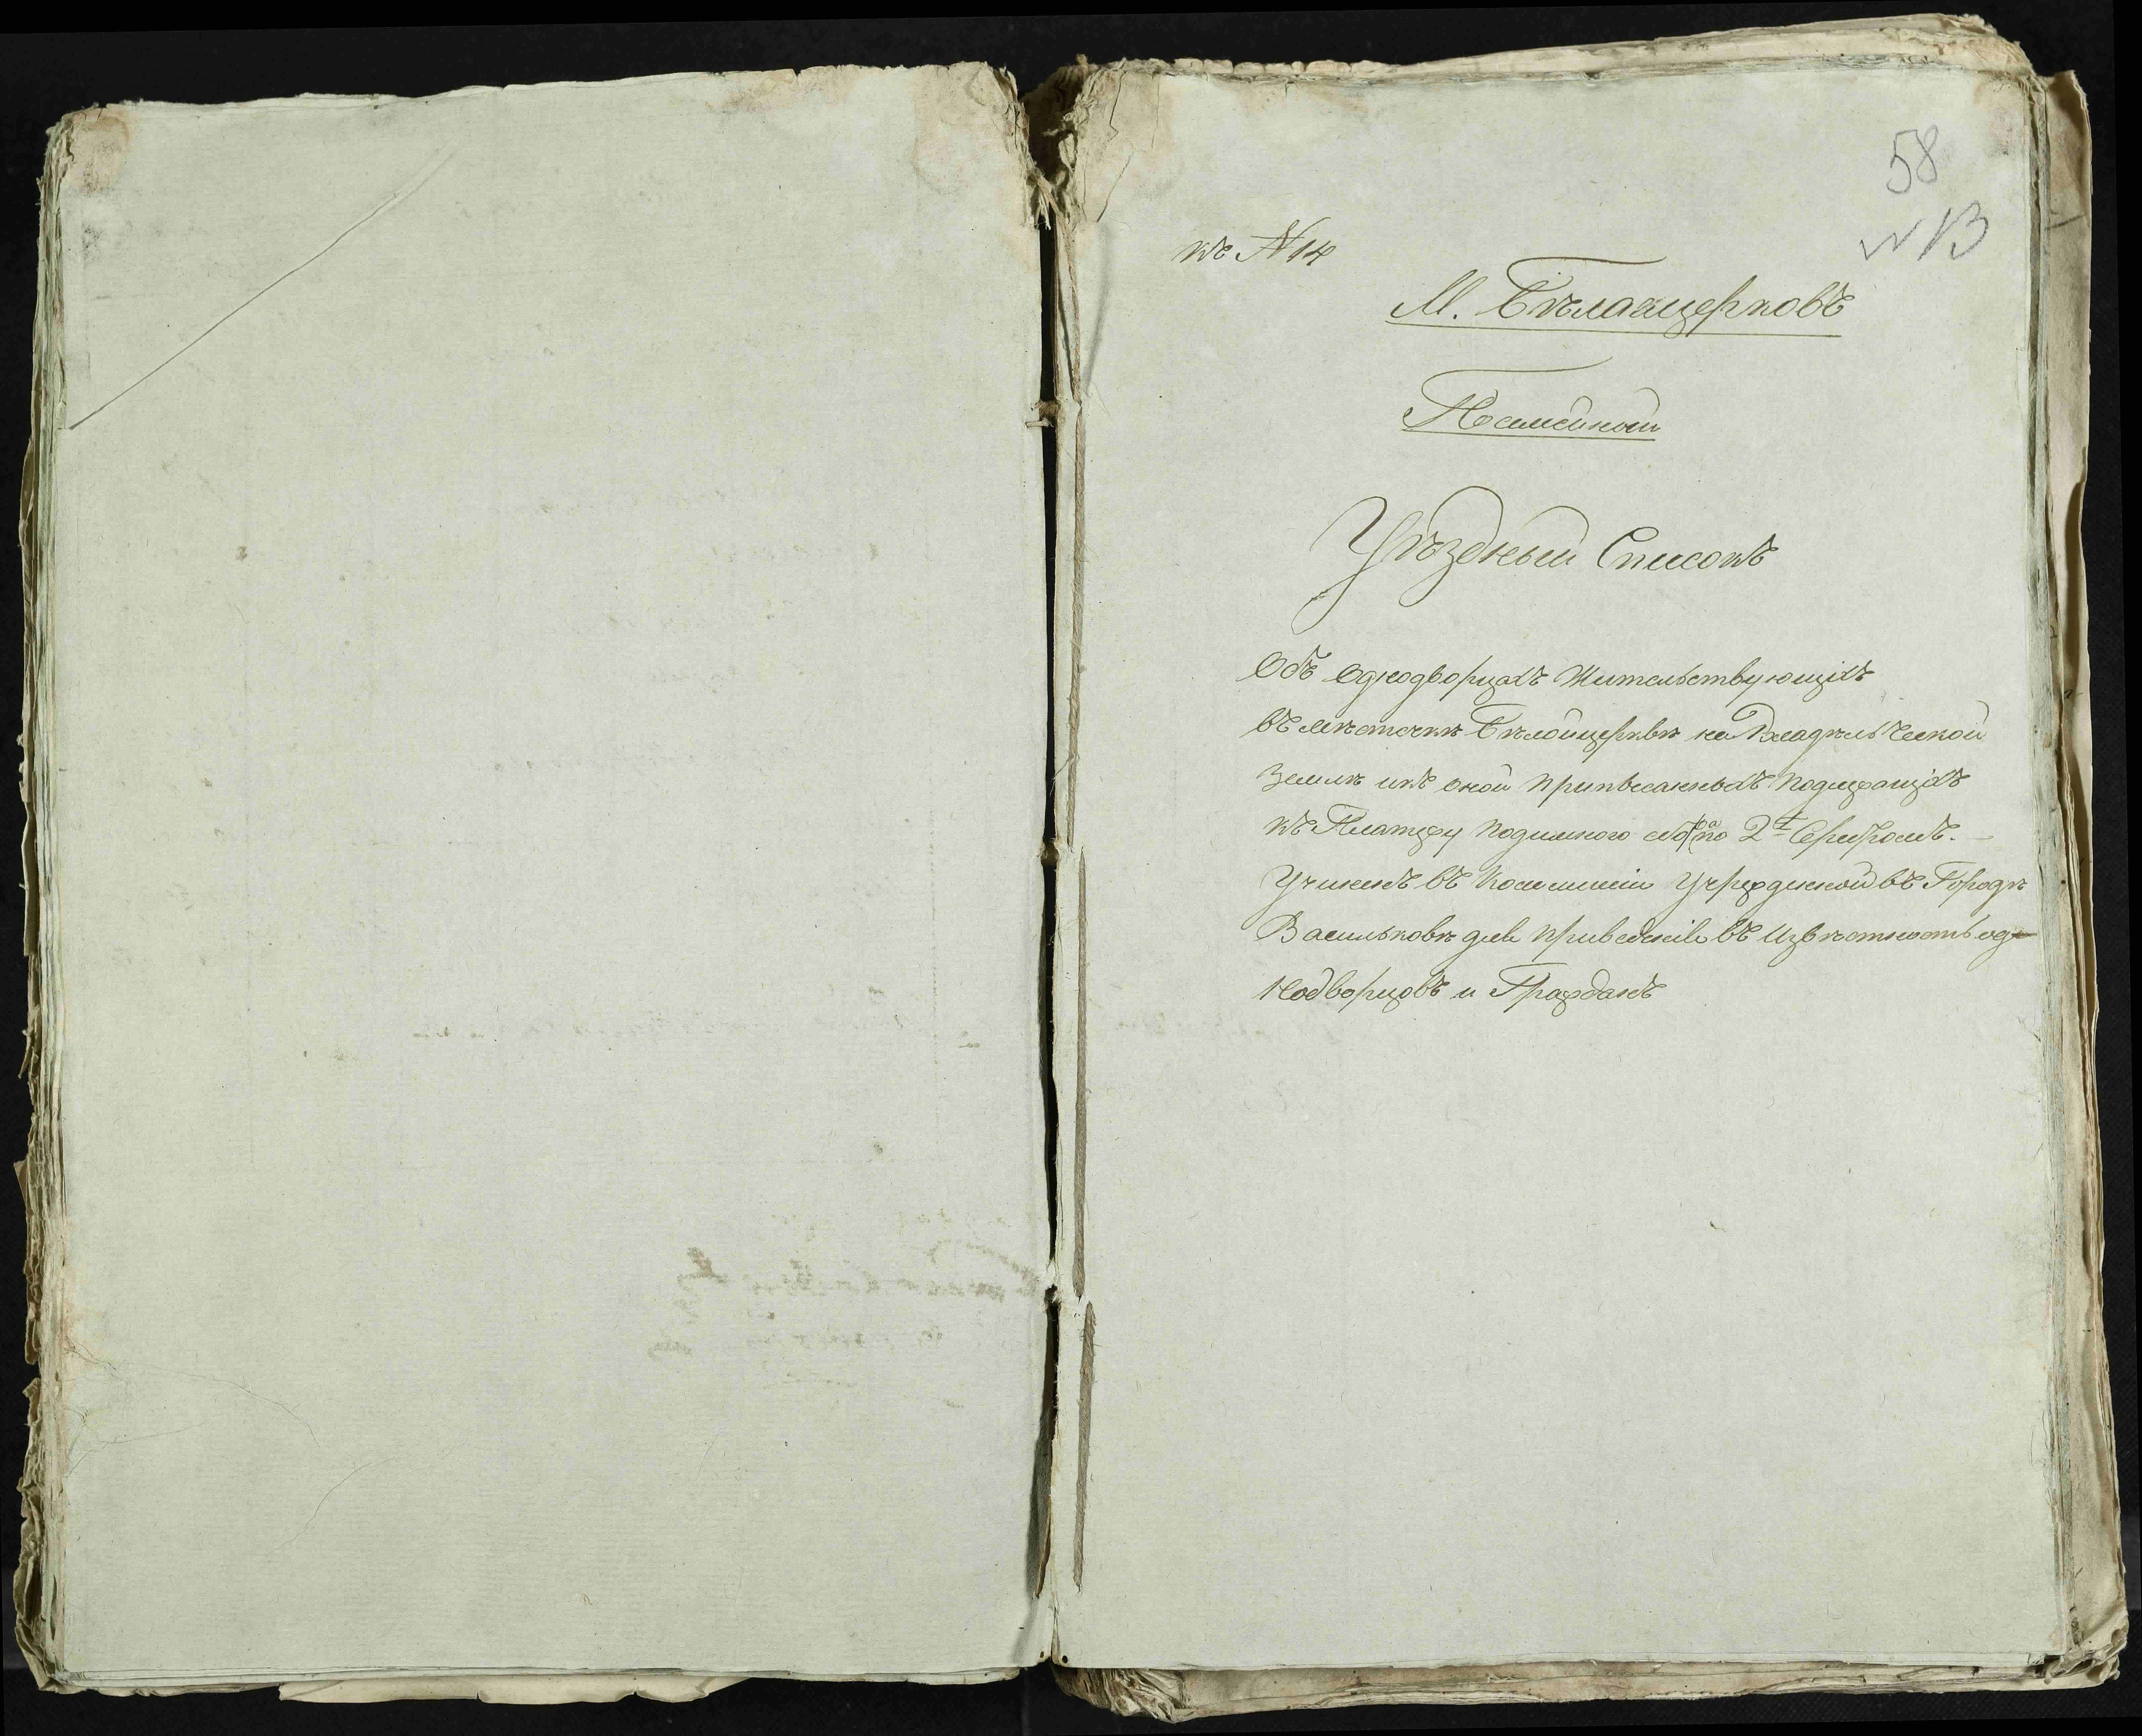 58
N 13
къ N 14
М. Бѣлацерковъ
Посемейной
Уѣздный Списокъ
Объ Однодворцахъ Жительствующихъ
въ мѣстечкѣ Бѣлойцерквѣ на Владѣльческой
Землѣ икъ оной приписанныхъ подлежащихъ
къ Платежу подымнаго сбора по 2 Серебромъ.
Учиненъ въ Коммисіи Учрежденной въ Городѣ
Васильковѣ для приведенія въ Извѣстность од-
нодворцовъ и Гражданъ